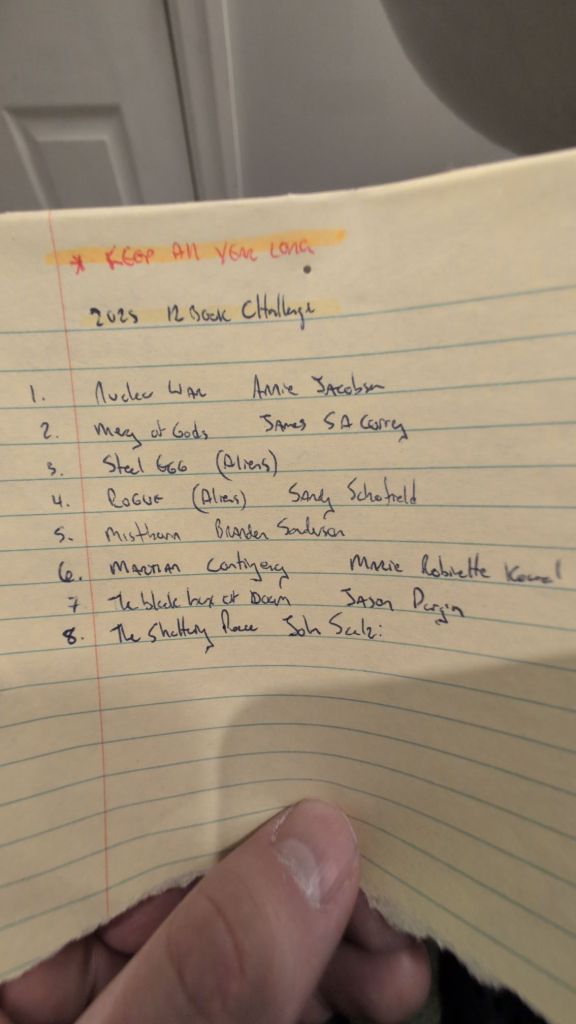 * KEEP All YEAR LONG
2025 12 Book CHallenge
1. Nuclear WAR Annie JAcobsen
2. Mercy of Gods JAMES SA Corey
3. Steel EGG (Aliens)
4. ROGUE (Aliens) SANdy Schofield
5. Mistborn BRANdon Sanderson
6. MARTIAN Contingency MARIE Robinette Kowal
7 The black box of Doom JASON Pargin
8. The Shattering Peace John Scalzi